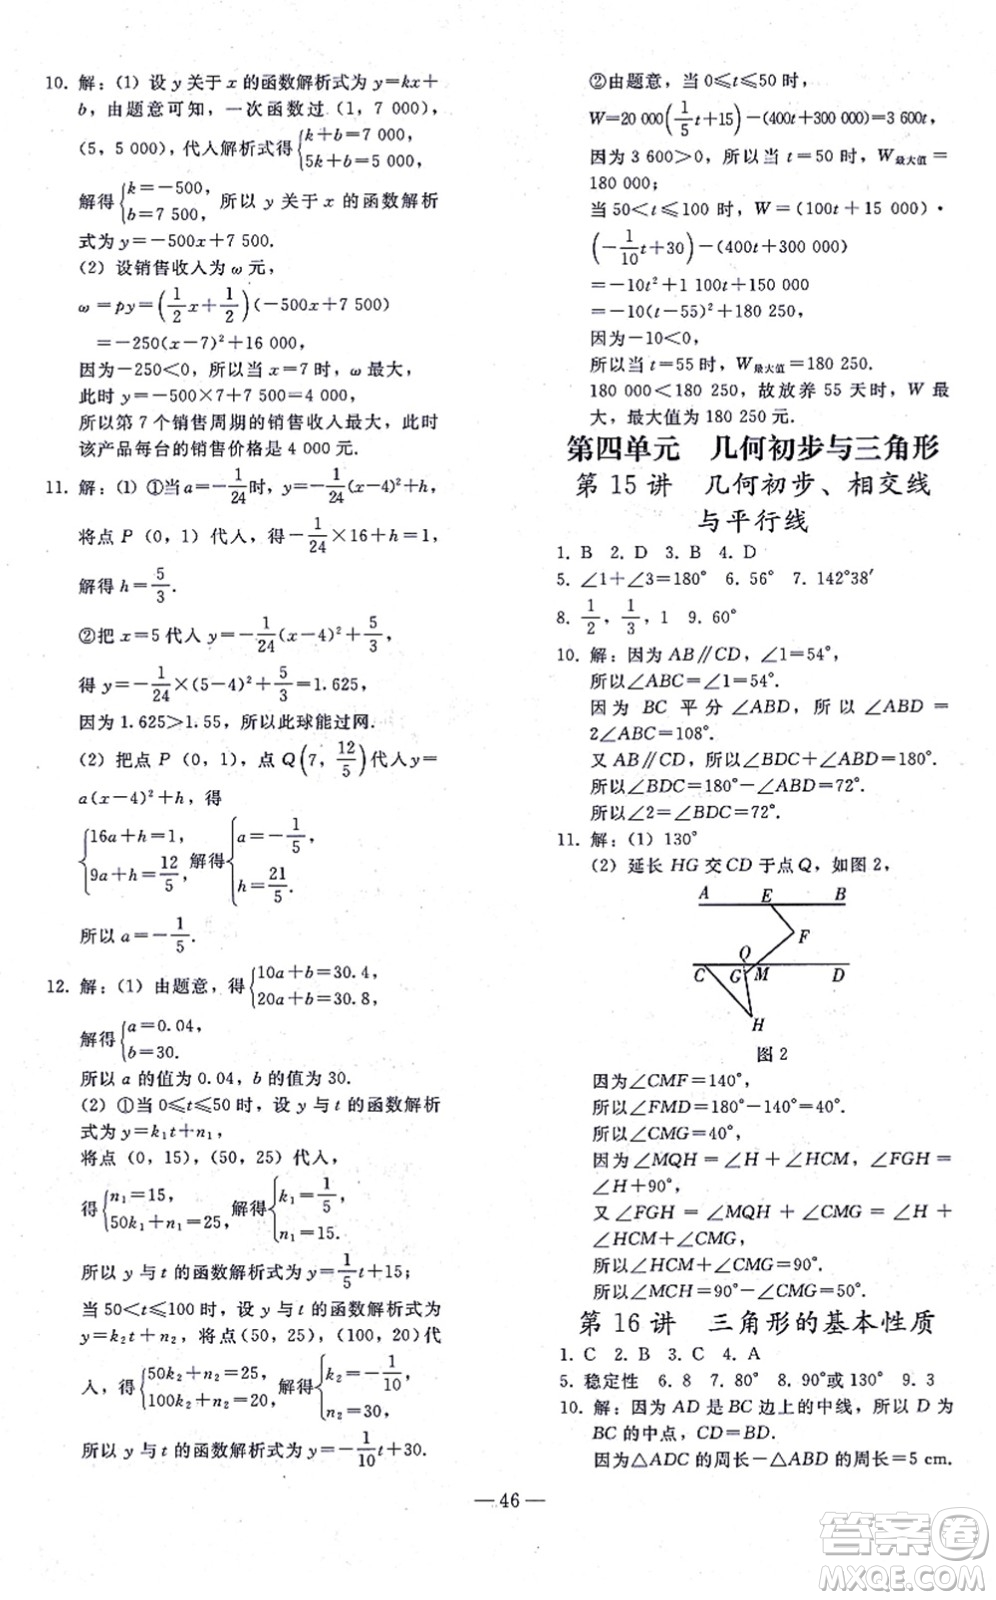 10. 解：(1) 设 y 关于 x 的函数解析式为 y=kx+
b，由题意可知，一次函数过 (1, 7 000)，
(5, 5 000)，代入解析式得{k+b=7 000, 5k+b=5 000.
解得{k=-500, b=7 500, 所以 y 关于 x 的函数解析
式为 y=-500x+7 500.
(2) 设销售收入为 ω 元，
ω=py=(1/2 x+1/2)(-500x+7 500)
=-250(x-7)²+16 000，
因为-250<0，所以当 x=7 时，ω 最大，
此时 y=-500×7+7 500=4 000，
所以第 7 个销售周期的销售收入最大，此时
该产品每台的销售价格是 4 000 元.
11. 解：(1) ①当 a=-1/24时，y=-1/24(x-4)²+h，
将点 P (0, 1) 代入，得-1/24×16+h=1，
解得 h=5/3.
②把 x=5 代入 y=-1/24(x-4)²+5/3，
得 y=-1/24×(5-4)²+5/3=1.625，
因为 1.625>1.55，所以此球能过网.
(2) 把点 P (0, 1)，点 Q(7, 12/5)代入 y=
a(x-4)²+h，得
{16a+h=1, 9a+h=12/5, 解得{a=-1/5, h=21/5.
所以 a=-1/5.
12. 解：(1) 由题意，得{10a+b=30.4, 20a+b=30.8,
解得{a=0.04, b=30.
所以 a 的值为 0.04，b 的值为 30.
(2) ①当 0≤t≤50 时，设 y 与 t 的函数解析
式为 y=k₁t+n₁，
将点 (0, 15)，(50, 25) 代入，
得{n₁=15, 50k₁+n₁=25, 解得{k₁=1/5, n₁=15.
所以 y 与 t 的函数解析式为 y=1/5t+15；
当 50<t≤100 时，设 y 与 t 的函数解析式为
y=k₂t+n₂，将点 (50, 25)，(100, 20) 代
入，得{50k₂+n₂=25, 100k₂+n₂=20 解得{k₂=-1/10, n₂=30,
所以 y 与 t 的函数解析式为 y=-1/10t+30.
②由题意，当 0≤t≤50 时，
W=20 000(1/5t+15)-(400t+300 000)=3 600t，
因为 3 600>0，所以当 t=50 时，W最大值=
180 000；
当 50<t≤100 时，W=(100t+15 000)·
(-1/10t+30)-(400t+300 000)
=-10t²+1 100t+150 000
=-10(t-55)²+180 250，
因为-10<0，
所以当 t=55 时，W最大值=180 250.
180 000<180 250，故放养 55 天时，W 最
大，最大值为 180 250 元.
第四单元 几何初步与三角形
第 15 讲 几何初步、相交线
与平行线
1. B 2. D 3. B 4. D
5. ∠1+∠3=180° 6. 56° 7. 142°38′
8. 1/2, 1/3, 1 9. 60°
10. 解：因为 AB∥CD，∠1=54°，
所以∠ABC=∠1=54°.
因为 BC 平分∠ABD，所以∠ABD=
2∠ABC=108°.
又 AB∥CD，所以∠BDC+∠ABD=180°.
所以∠BDC=180°-∠ABD=72°.
所以∠2=∠BDC=72°.
11. 解：(1) 130°
(2) 延长 HG 交 CD 于点 Q，如图 2，
A E B
F
Q
C G M D
H
图 2
因为∠CMF=140°，
所以∠FMD=180°-140°=40°.
所以∠CMG=40°，
因为∠MQH=∠H+∠HCM，∠FGH=
∠H+90°，
又∠FGH=∠MQH+∠CMG=∠H+
∠HCM+∠CMG，
所以∠HCM+∠CMG=90°.
所以∠MCH=90°-∠CMG=50°.
第 16 讲 三角形的基本性质
1. C 2. B 3. C 4. A
5. 稳定性 6. 8 7. 80° 8. 90°或 130° 9. 3
10. 解：因为 AD 是 BC 边上的中线，所以 D 为
BC 的中点，CD=BD.
因为△ADC 的周长-△ABD 的周长=5 cm.
— 46 —
答案圈
MXQE.COM